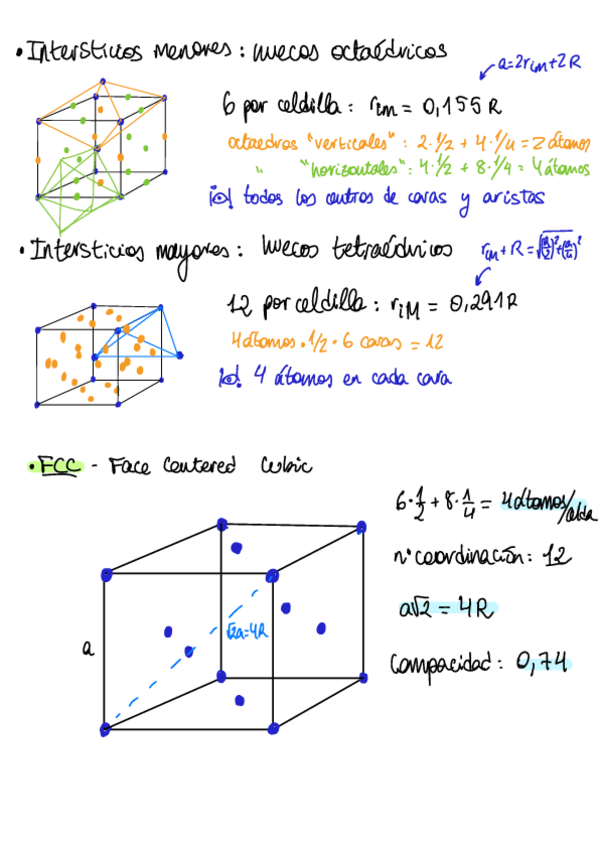 • Intersticios Menores : huecos octaédricos
a=2rim+2R
6 por celdilla : rim = 0,155R
octaedros "verticales" : 2·1/2 + 4·1/4 = 2 átomos
" "horizontales" : 4·1/2 + 8·1/4 = 4 átomos
¡o! todos los centros de caras y aristas
• Intersticios mayores : huecos tetraédricos
12 por celdilla : riM = 0,291R
4 átomos · 1/2 · 6 caras = 12
¡o! 4 átomos en cada cara
• FCC - Face Centered Cubic
6·1/2 + 8·1/4 = 4 átomos/celda
nº coordinación : 12
a
√2a=4R
a√2 = 4R
Compacidad : 0,74